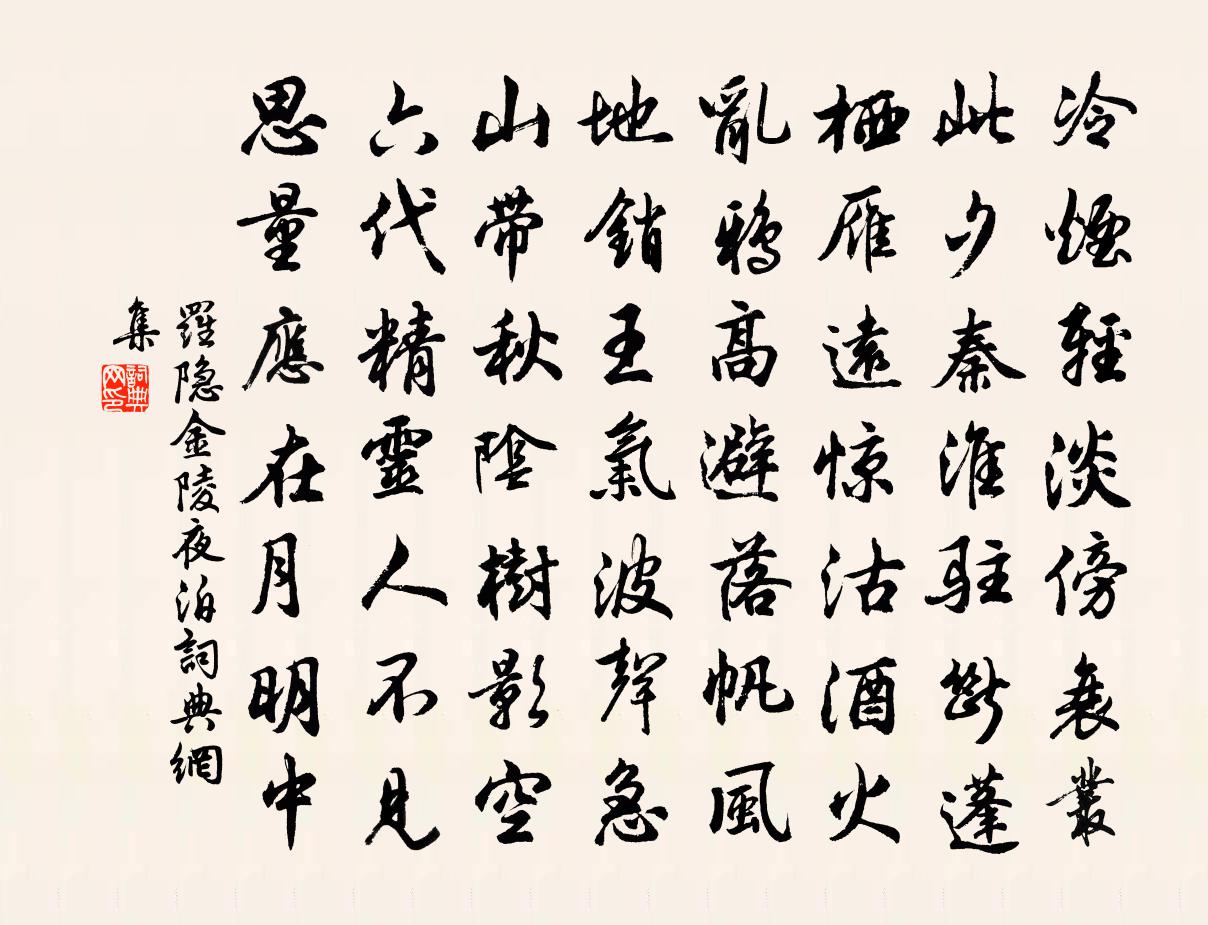 冷煙輕淡傍衰叢
此夕秦淮駐斷蓬
栖雁遠惊沽酒火
亂鴉高避落帆風
地銷王氣波聲急
山帶秋陰樹影空
六代精靈人不見
思量應在月明中
羅隐金陵夜泊詞典網
集
詞典
网印